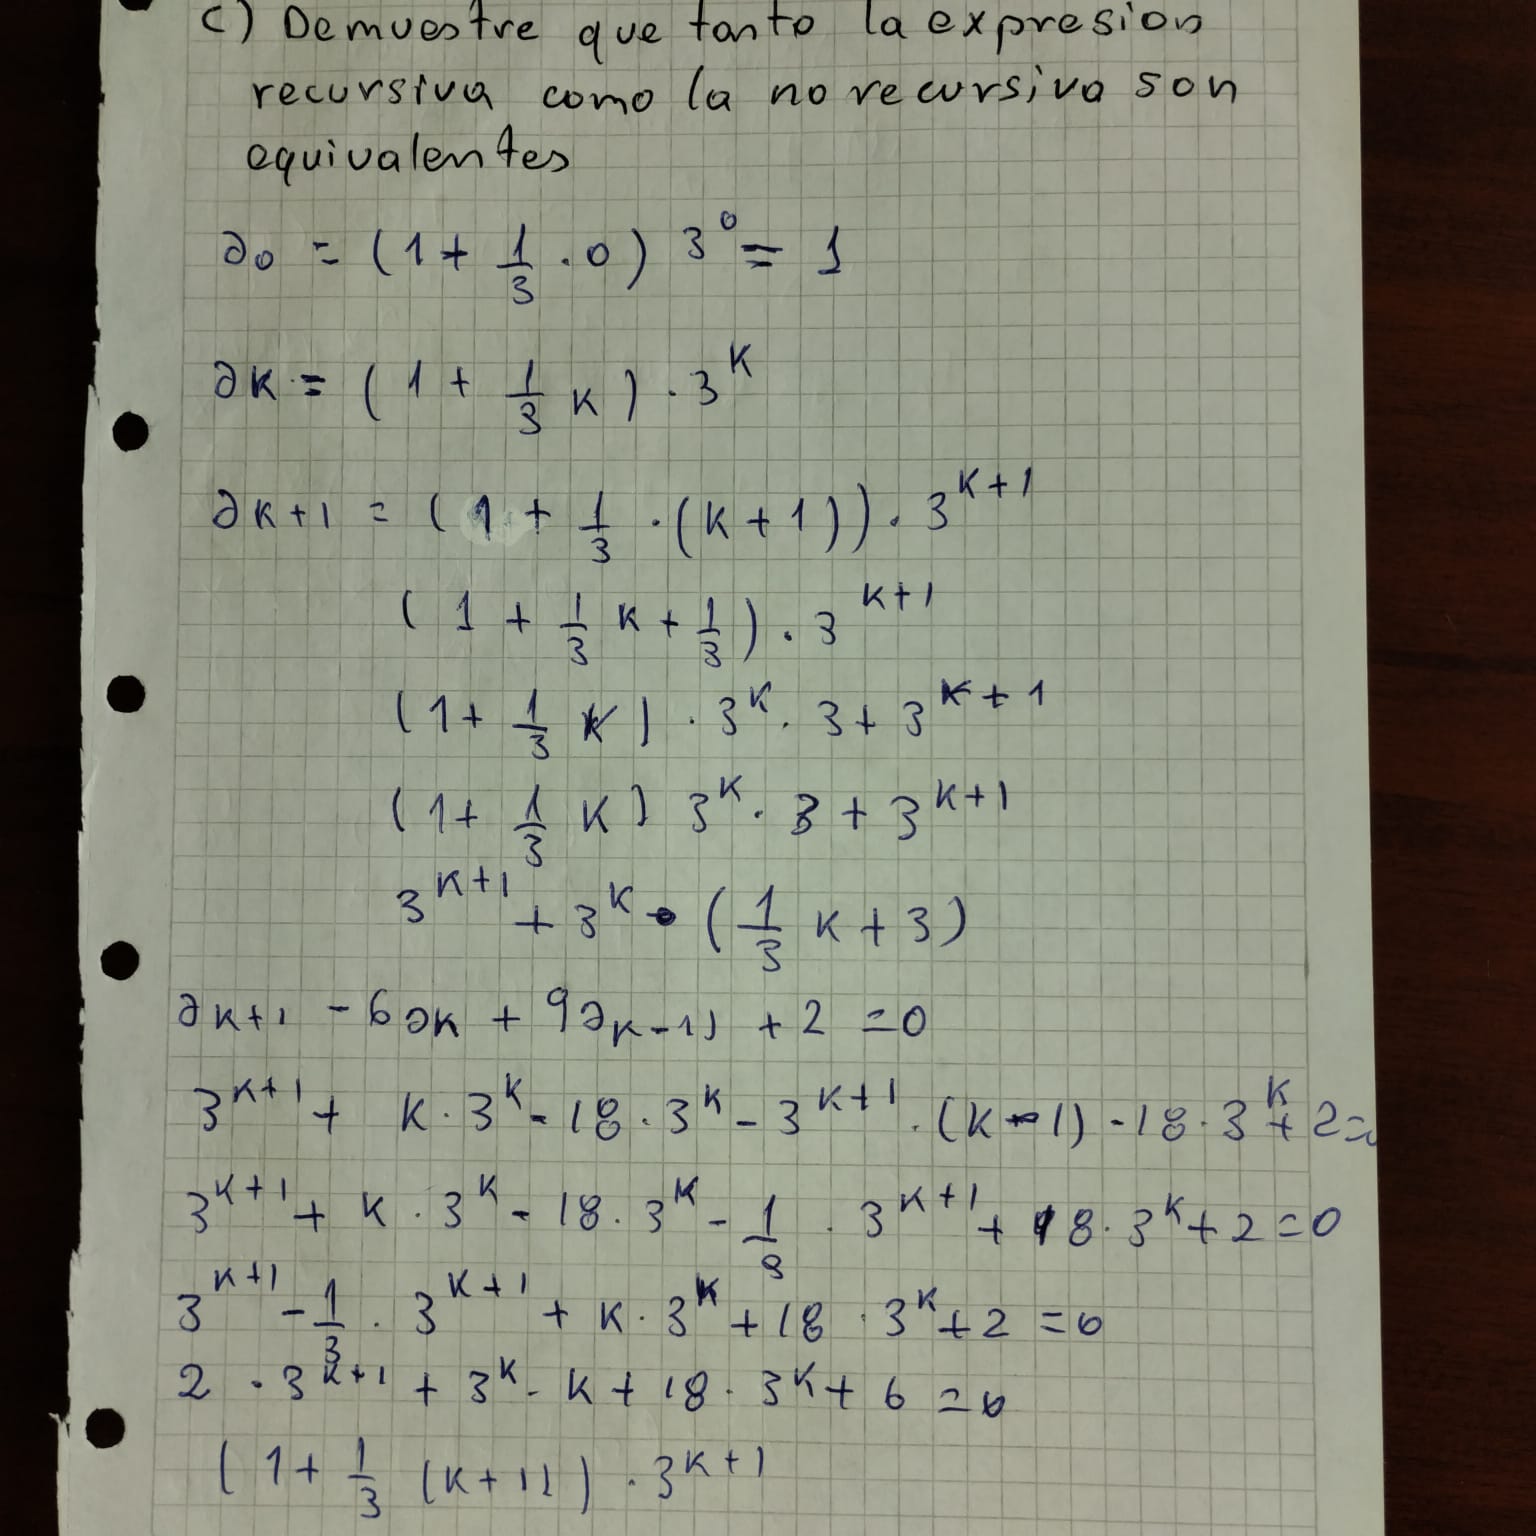 c) Demuestre que tanto la expresion
recursiva como la no recursiva son
equivalentes
a0 = (1 + 1/3 . 0) 3^0 = 1
aK = (1 + 1/3 K) . 3^K
aK+1 = (1 + 1/3 . (K+1)) . 3^K+1
(1 + 1/3 K + 1/3) . 3^K+1
(1 + 1/3 K) . 3^K . 3 + 3^K+1
(1 + 1/3 K) 3^K . 3 + 3^K+1
3^K+1 + 3^K . (1/3 K + 3)
aK+1 - 6aK + 9aK-1) + 2 = 0
3^K+1 + K . 3^K - 18 . 3^K - 3^K+1 . (K-1) - 18 . 3^K + 2 =
3^K+1 + K . 3^K - 18 . 3^K - 1/3 . 3^K+1 + 18 . 3^K + 2 = 0
3^K+1 - 1/3 . 3^K+1 + K . 3^K + 18 . 3^K + 2 = 0
2 . 3^K+1 + 3^K . K + 18 . 3^K + 6 = 0
(1 + 1/3 (K+1)) . 3^K+1